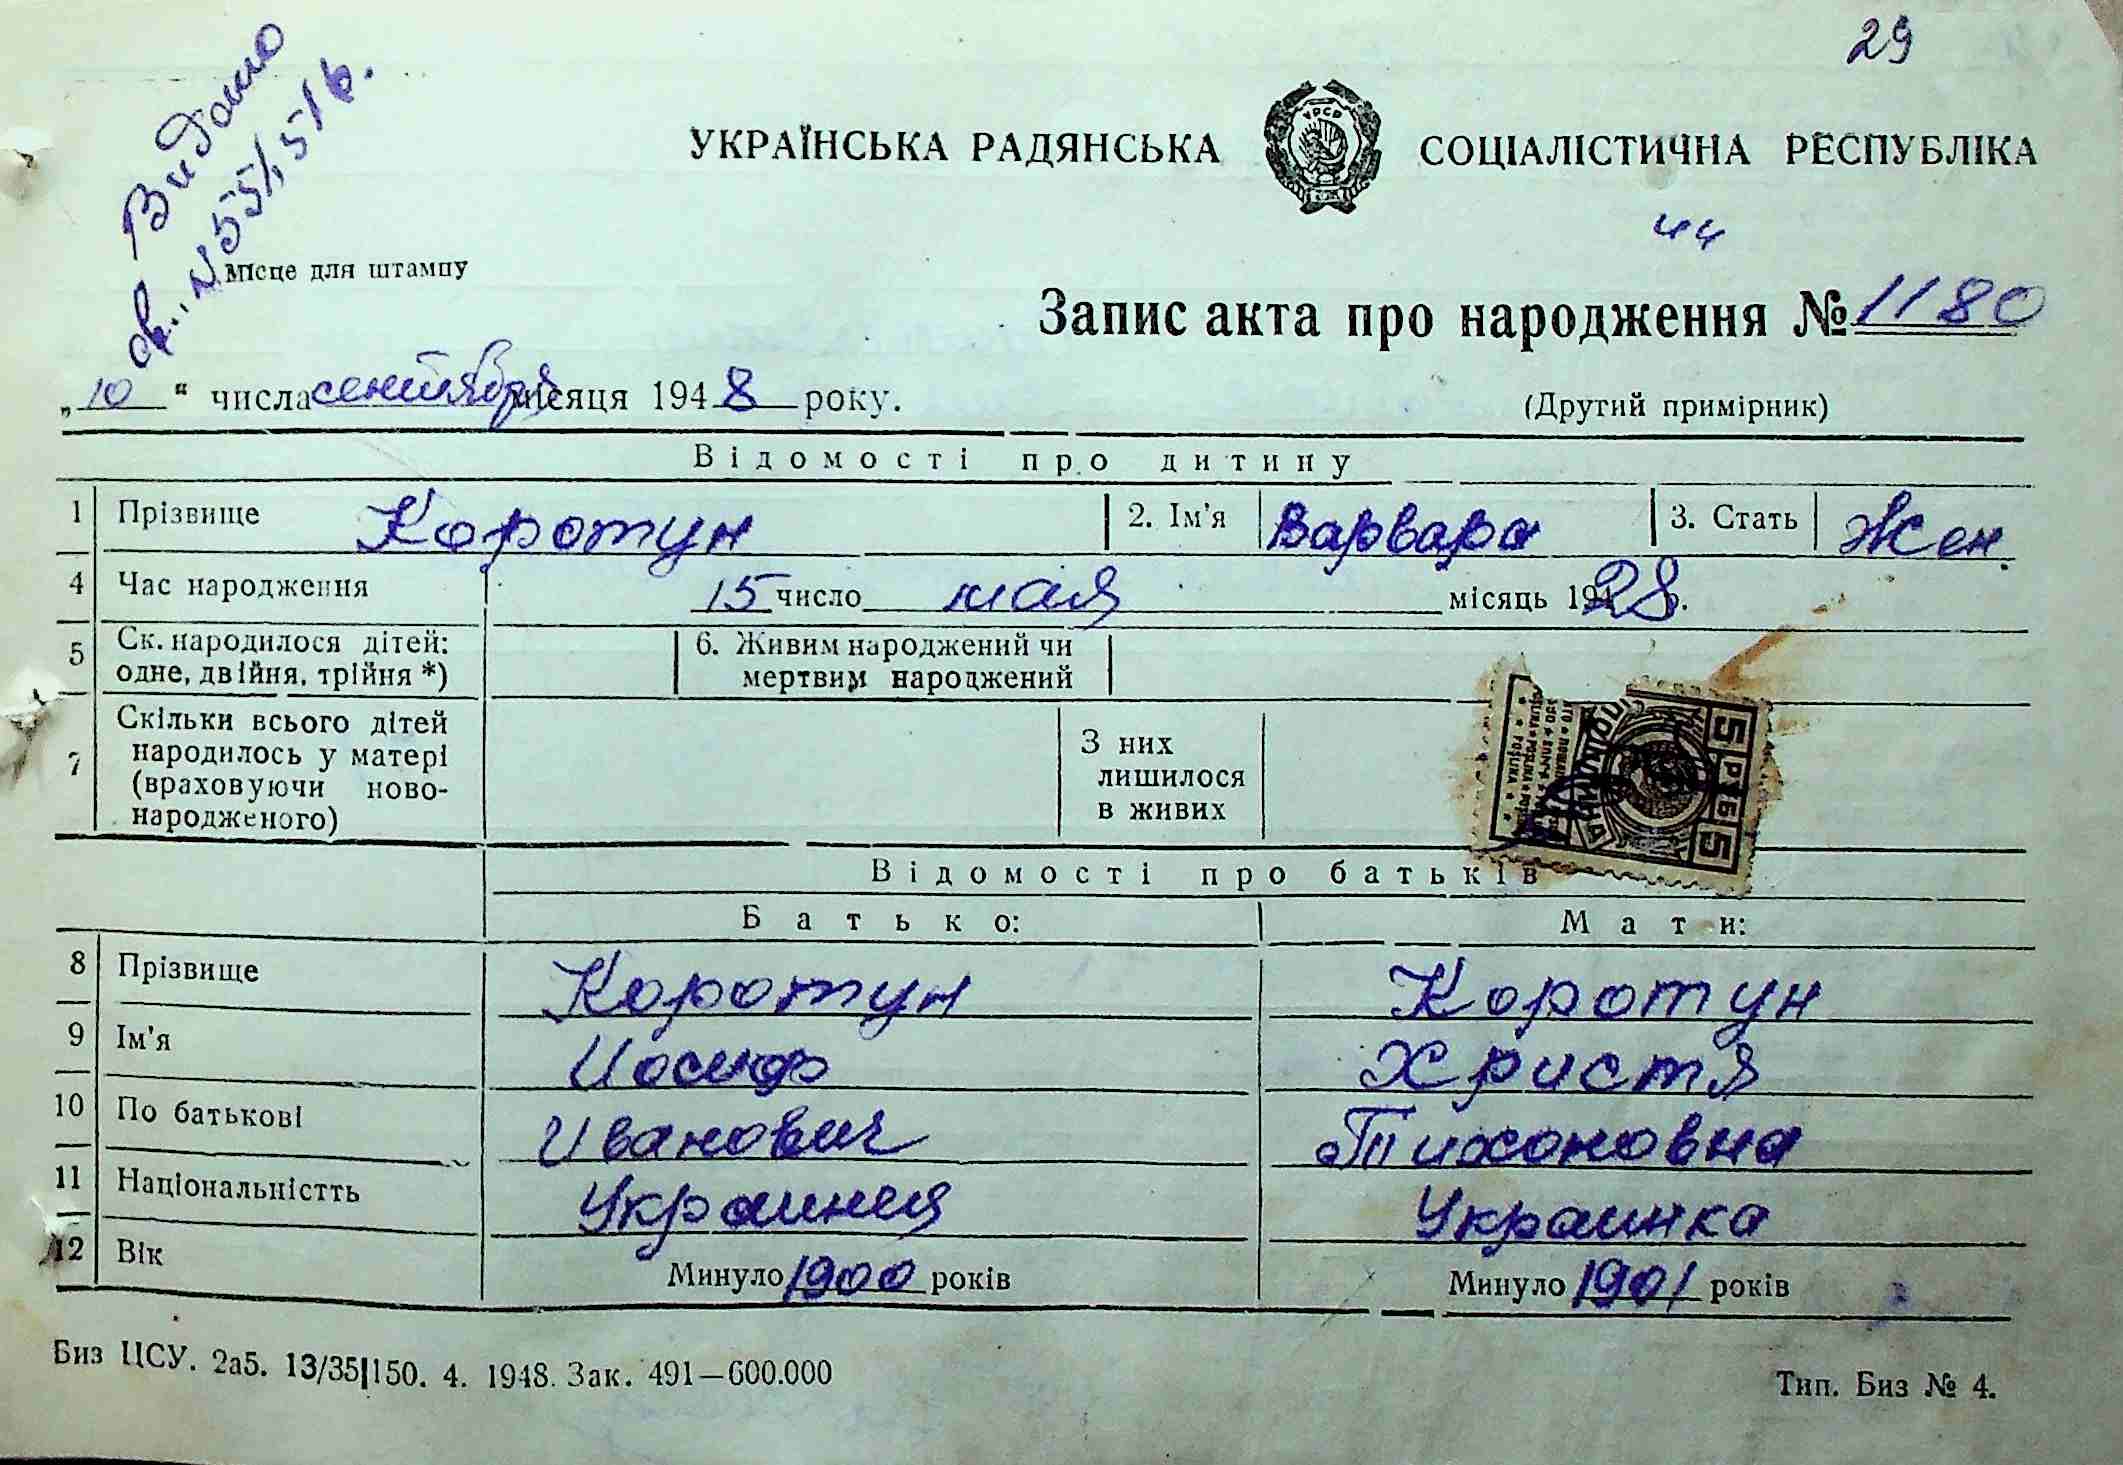 29
Видано
УКРАЇНСЬКА РАДЯНСЬКА СОЦІАЛІСТИЧНА РЕСПУБЛІКА
УРСР
44
Місце для штампу
Запис акта про народження № 1180
„10“ числа сентября місяця 1948 року.
(Другий примірник)
Відомості про дитину
1 Прізвище Коротун 2. Ім'я Варвара 3. Стать Жен.
4 Час народження 15 число мая місяць 1928.
5 Ск. народилося дітей: одне, двійня, трійня *) 6. Живим народжений чи мертвим народжений
7 Скільки всього дітей народилось у матері (враховуючи новонародженого) З них лишилося в живих
5 РУБ 5
Відомості про батьків
Батько: Мати:
8 Прізвище Коротун Коротун
9 Ім'я Иосиф Христя
10 По батькові Иванович Тихоновна
11 Національністть Украинец Украинка
12 Вік Минуло 1900 років Минуло 1901 років
Биз ЦСУ. 2а5. 13/35|150. 4. 1948. Зак. 491—600.000
Тип. Биз № 4.